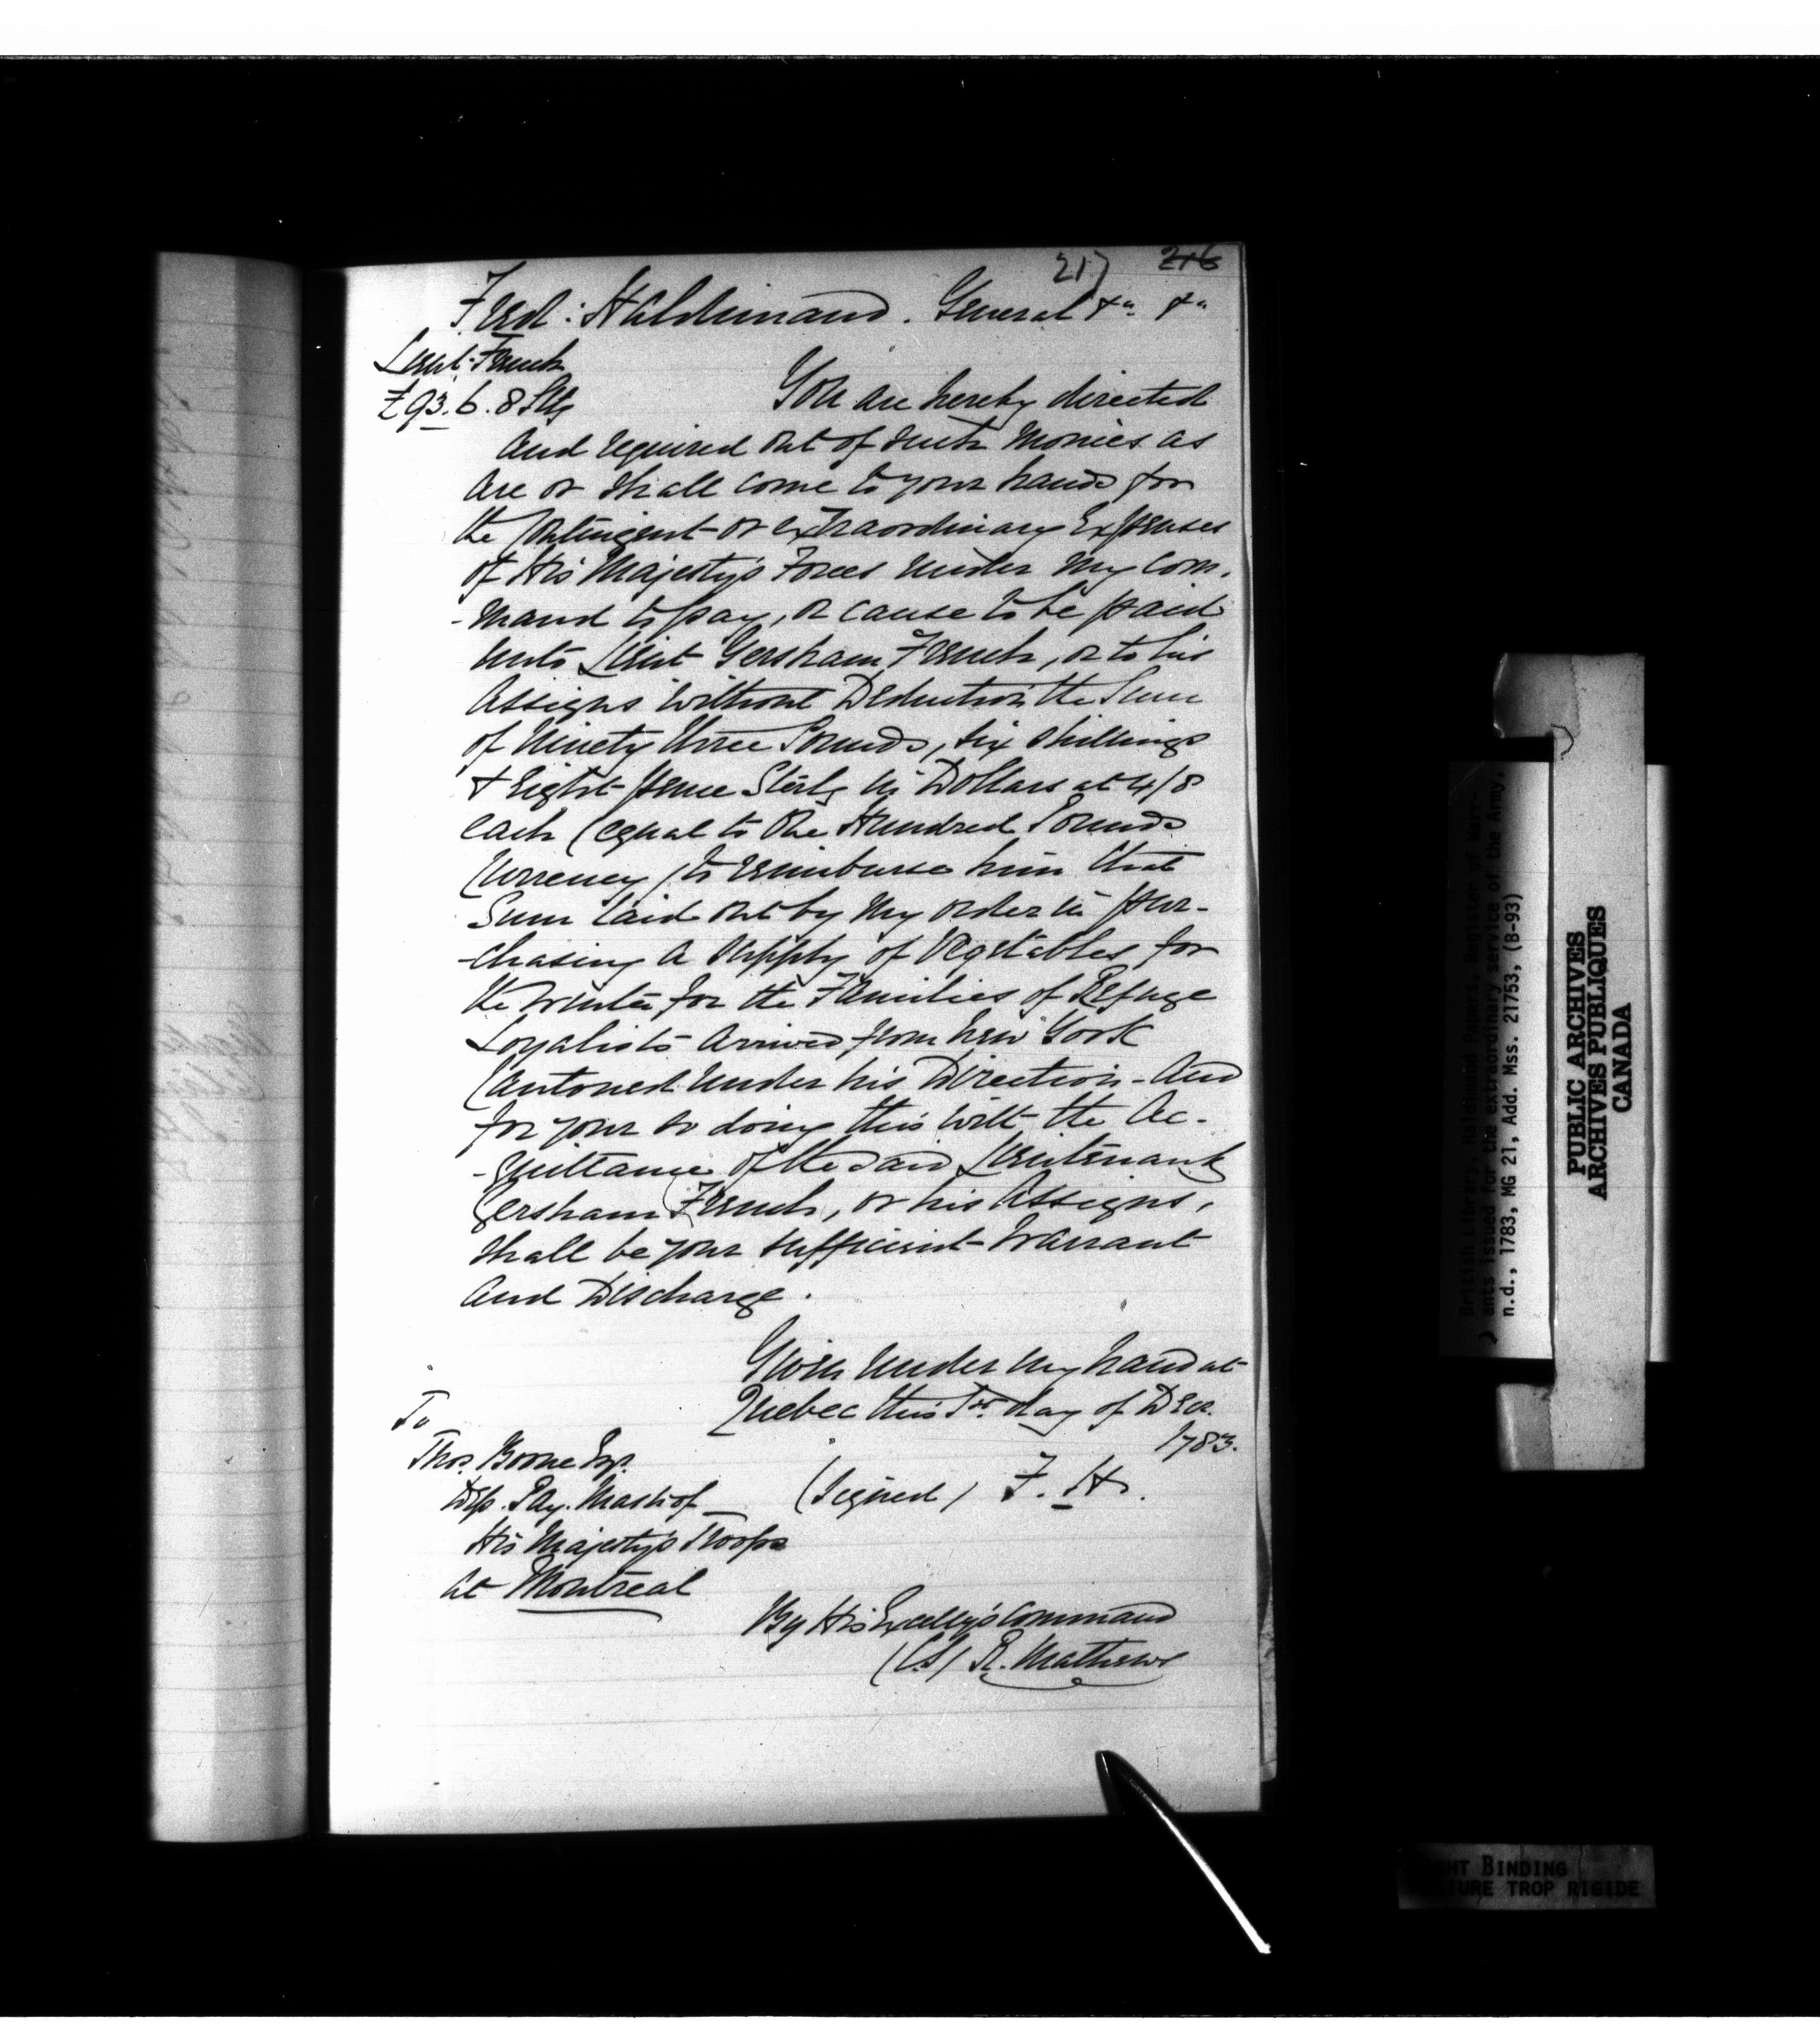 217 216
Fred: Haldimand. General &a &a
Lieut. French
£93.6.8 Stg
You are hereby directed
and required out of such monies as
are or shall come to your hands for
the Contingent or extraordinary Expenses
of His Majesty's Forces under my Com.
-mand to pay, or cause to be paid
unto Lieut Gersham French, or to his
Assigns without Deduction the Sum
of Ninety three Pounds, six shillings
& Eight pence Sterlg in Dollars at 4/8
each (equal to One Hundred Pounds
Currency) to reimburse him that
Sum laid out by my order in pur-
-chasing a supply of Vegetables for
the winter for the Families of Refuge
Loyalists arrived from New York
Cantoned under his Direction - And
for your so doing this with the Ac-
-quittance of the said Lieutenant
Gersham French, or his Assigns,
shall be your sufficient Warrant
and Discharge.
Given under my hand at
Quebec this 1st day of Decr.
1783.
To
Thos. Boone Esqr.
Dep. Pay. Mastr of
His Majesty's Troops
at Montreal
(Signed) F. H.
By His Excelly's Command
(C.S) R. Mathews
British Library, Haldimand Papers, Register of Warr-
ants issued for the extraordinary service of the Army,
n.d., 1783, MG 21, Add. Mss. 21753, (B-93)
PUBLIC ARCHIVES
ARCHIVES PUBLIQUES
CANADA
HT BINDING
IURE TROP RIGIDE